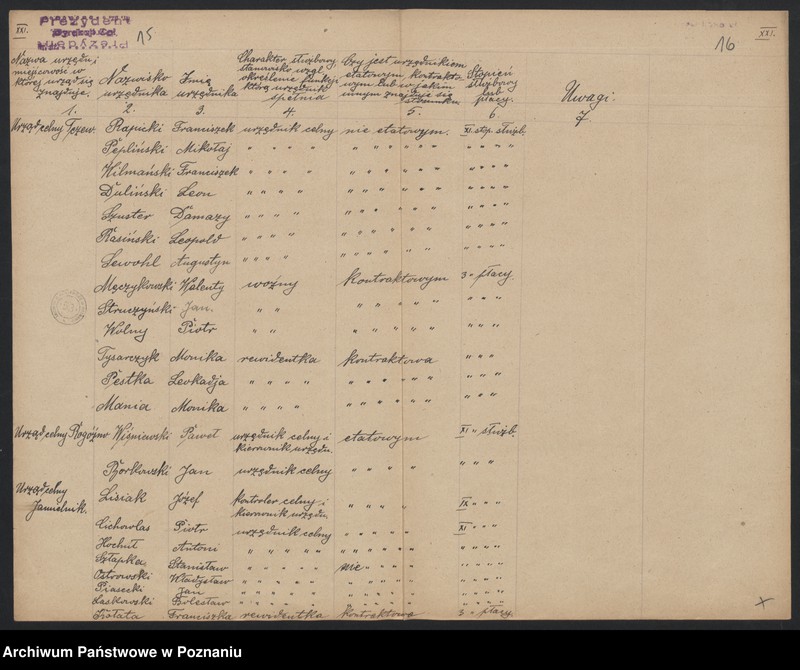 XXI.
15
16
XXI.
Nazwa urzędu i miejscowość w której urząd się znajduje. Nazwisko urzędnika Imię urzędnika Charakter służbowy stanowisko wzgl. określenie funkcji którą urzędnik spełnia Czy jest urzędnikiem etatowym, kontraktowym lub w jakim innym znajduje się stosunku Stopień służbowy lub płacy. Uwagi.
1. 2. 3. 4. 5. 6. 7.
Urząd celny Tczew. Rapicki Franciszek urzędnik celny nie etatowym. XI. stp. służb.
Pepliński Mikołaj " " " " " " " " " "
Hilmański Franciszek " " " " " " " " " "
Duliński Leon " " " " " " " " " " " "
Szuster Damazy " " " " " " " " " " " "
Rasiński Leopold " " " " " " " " " " " "
Lewohl Augustyn " " " " " " " " " " " "
Męczykowski Walenty woźny kontraktowym 3 " płacy.
Struczyński Jan. " " " " " " " " "
Wolny Piotr " " " " " " " " "
Tysarczyk Monika rewidentka kontraktowa " " "
Pestka Leokadja " " " " " " " " " " "
Mania Monika " " " " " " " " " " "
Urząd celny Rogóźno Wiśniewski Paweł urzędnik celny i kierownik urzędu. etatowym XI " służb.
Borkowski Jan urzędnik celny " " " " " " "
Urząd celny Jamielnik. Lisiak Józef kontroler celny i kierownik urzędu. " " " " IX " " "
Cichowlas Piotr urzędnik celny " " " " XI " " "
Antoni " " " " " " " " " " " "
Szłapka Stanisław " " " " " nie " " " " " " "
Ostrowski Władysław " " " " " " " " " " " "
Piasecki Jan " " " " " " " " " " " "
Laskowski Bolesław " " " " " " " " " " " "
Franciszka rewidentka kontraktowa 3 " płacy.
Archiwum Państwowe w Poznaniu